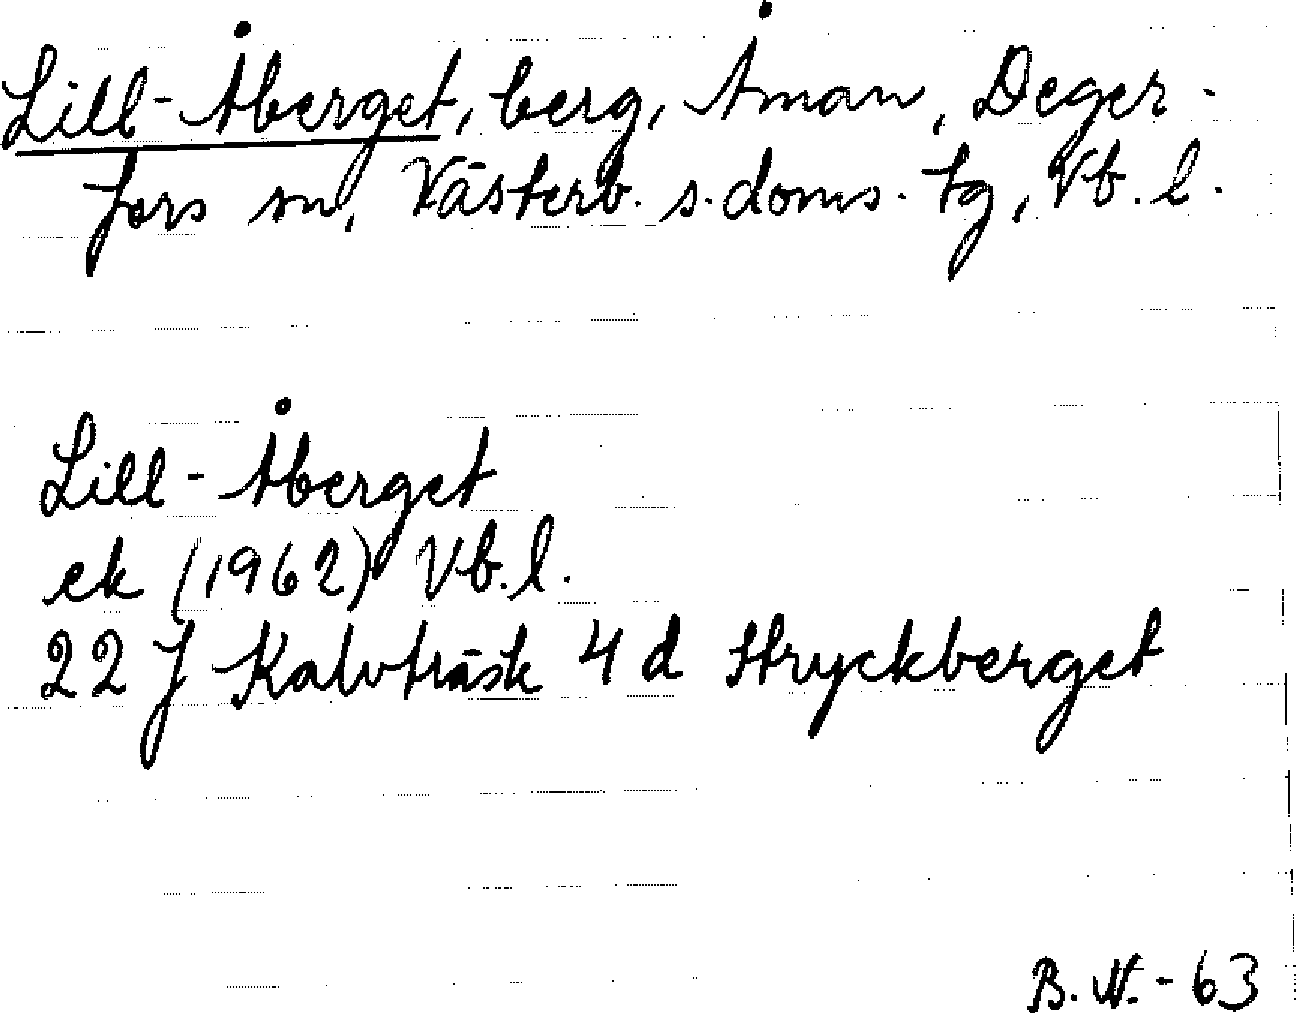 Lill-Åberget, berg, Åman, Deger-
fors sn, Västerb. s. doms. tg, Vb. l.
Lill-Åberget
ek (1962) Vb. l.
22 J Kalvträsk 4 d Stryckberget
B. N. - 63